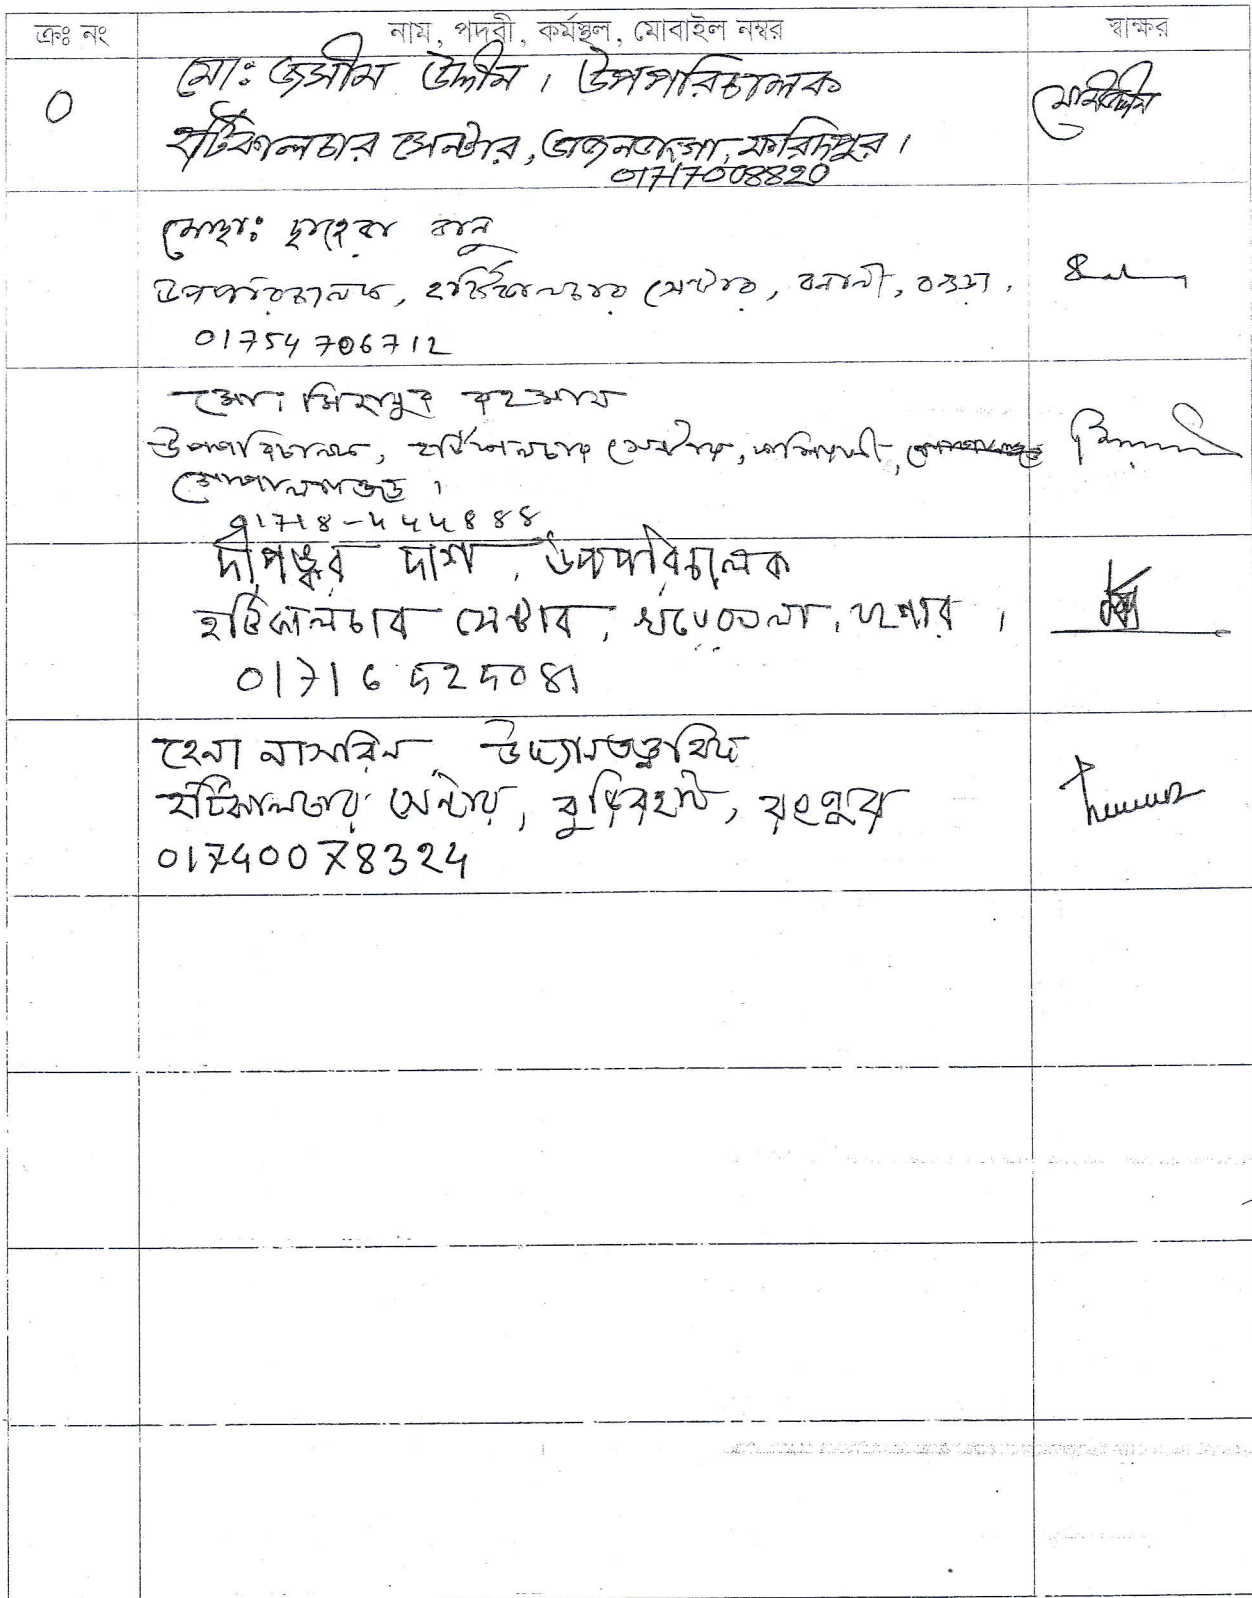 ক্রঃ নং নাম, পদবী, কর্মস্থল, মোবাইল নম্বর স্বাক্ষর
মো: জসীম উদ্দীন। উপপরিচালক
0
হর্টিকালচার সেন্টার, ভাজনডাঙ্গা, ফরিদপুর।
01717008820
মোছা: ছাহেরা বানু
উপপরিচালক, হর্টিকালচার সেন্টার, বনানী, বগুড়া,
01754706712
মো: মিজানুর রহমান
উপপরিচালক, হর্টিকালচার সেন্টার, কাশিয়ানী,
গোপালগঞ্জ।
01718-444888
দীপঙ্কর দাশ, উপপরিচালক
হর্টিকালচার সেন্টার, খয়েরতলা, যশোর।
01716525081
হেনা নাসরিন, উদ্যানতত্ত্ববিদ
হর্টিকালচার সেন্টার, বুড়িরহাট, রংপুর
01740078324